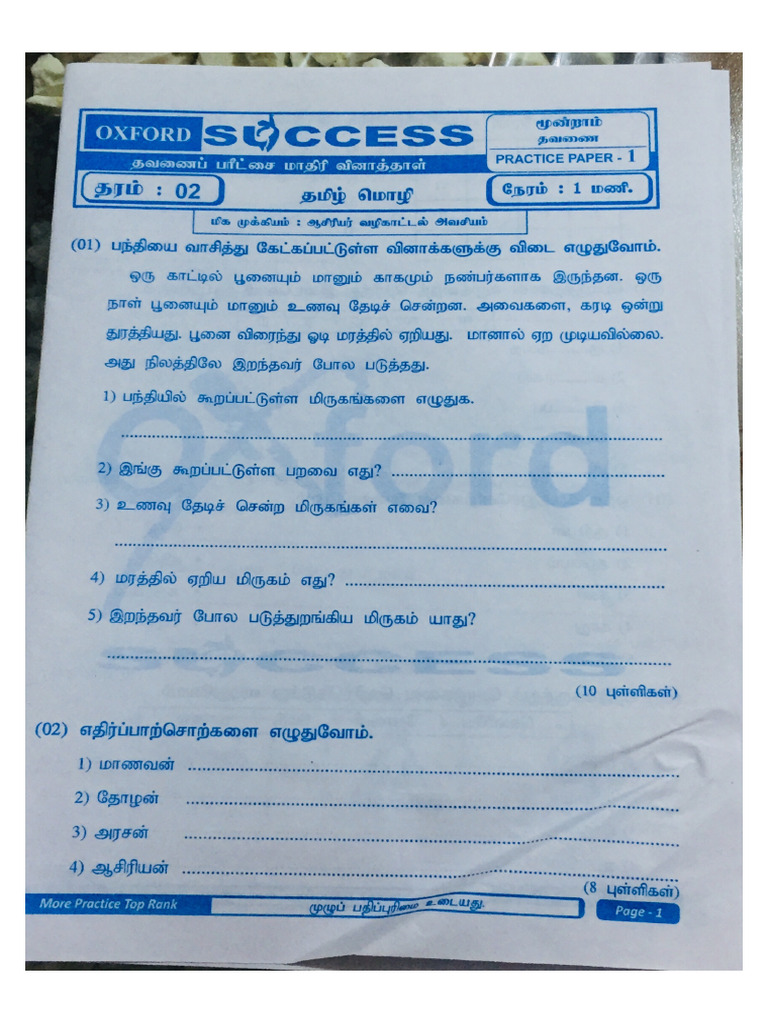 OXFORD SUCCESS
மூன்றாம்
தவணை
தவணைப் பரீட்சை மாதிரி வினாத்தாள்
PRACTICE PAPER - 1
தரம் : 02
தமிழ் மொழி
நேரம் : 1 மணி.
மிக முக்கியம் : ஆசிரியர் வழிகாட்டல் அவசியம்
(01) பந்தியை வாசித்து கேட்கப்பட்டுள்ள வினாக்களுக்கு விடை எழுதுவோம்.
ஒரு காட்டில் பூனையும் மானும் காகமும் நண்பர்களாக இருந்தன. ஒரு
நாள் பூனையும் மானும் உணவு தேடிச் சென்றன. அவைகளை, கரடி ஒன்று
துரத்தியது. பூனை விரைந்து ஓடி மரத்தில் ஏறியது. மானால் ஏற முடியவில்லை.
அது நிலத்திலே இறந்தவர் போல படுத்தது.
1) பந்தியில் கூறப்பட்டுள்ள மிருகங்களை எழுதுக.
2) இங்கு கூறப்பட்டுள்ள பறவை எது? ........................................
3) உணவு தேடிச் சென்ற மிருகங்கள் எவை?
4) மரத்தில் ஏறிய மிருகம் எது? ........................................
5) இறந்தவர் போல படுத்துறங்கிய மிருகம் யாது?
(10 புள்ளிகள்)
(02) எதிர்ப்பாற்சொற்களை எழுதுவோம்.
1) மாணவன் ........................................
2) தோழன் ........................................
3) அரசன் ........................................
4) ஆசிரியன் ........................................
(8 புள்ளிகள்)
More Practice Top Rank
முழுப் பதிப்புரிமை உடையது.
Page - 1
Oxford
SUCCESS